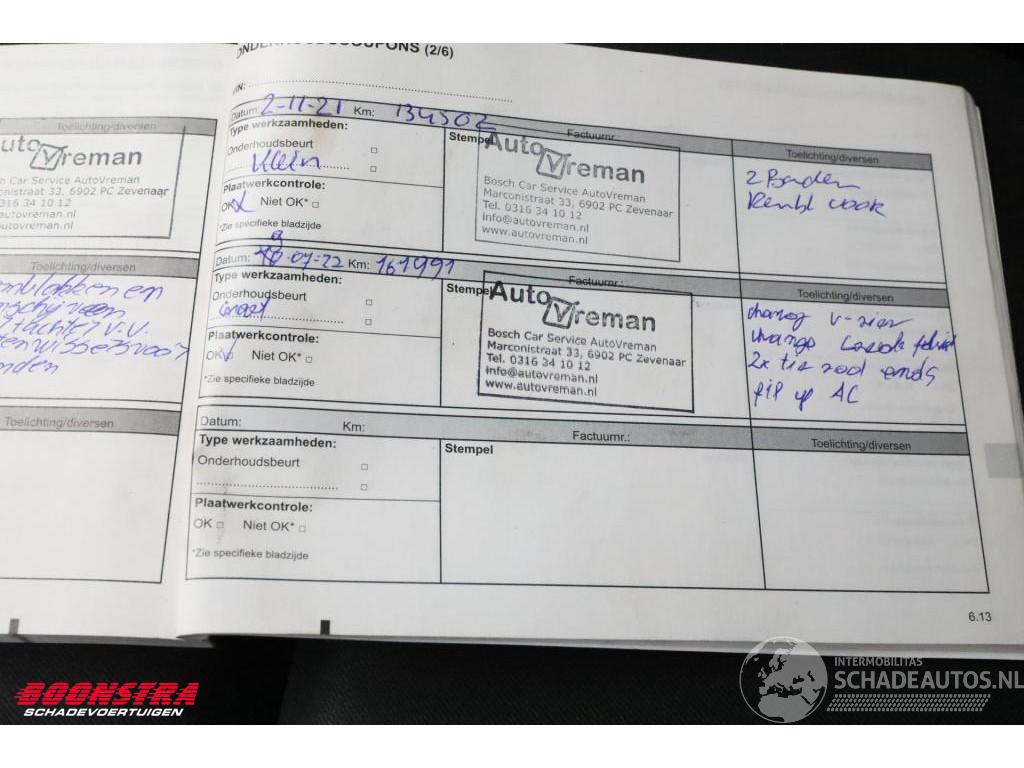 ONDERHOUDSCOUPONS (2/6)
VIN:
Datum: 2-11-21 Km: 134502 Factuurnr.:
Toelichting/diversen
Type werkzaamheden:
Onderhoudsbeurt
Klein
Plaatwerkcontrole:
OK Niet OK*
*Zie specifieke bladzijde
Stempel
Auto Vreman
Bosch Car Service AutoVreman
Marconistraat 33, 6902 PC Zevenaar
Tel. 0316 34 10 12
info@autovreman.nl
www.autovreman.nl
2 Banden
Datum: 07-22 Km: 161991 Factuurnr.:
Toelichting/diversen
Type werkzaamheden:
Onderhoudsbeurt
Plaatwerkcontrole:
OK Niet OK*
*Zie specifieke bladzijde
Stempel
Auto Vreman
Bosch Car Service AutoVreman
Marconistraat 33, 6902 PC Zevenaar
Tel. 0316 34 10 12
info@autovreman.nl
www.autovreman.nl
2x tie rod ends
fill up AC
Datum: Km: Factuurnr.:
Toelichting/diversen
Type werkzaamheden:
Onderhoudsbeurt
Plaatwerkcontrole:
OK Niet OK*
*Zie specifieke bladzijde
Stempel
6.13
Toelichting/diversen
uto Vreman
ch Car Service AutoVreman
conistraat 33, 6902 PC Zevenaar
0316 34 10 12
autovreman.nl
autovreman.nl
Toelichting/diversen
en
achter V.V.
Toelichting/diversen
BOONSTRA
SCHADEVOERTUIGEN
INTERMOBILITAS
SCHADEAUTOS.NL